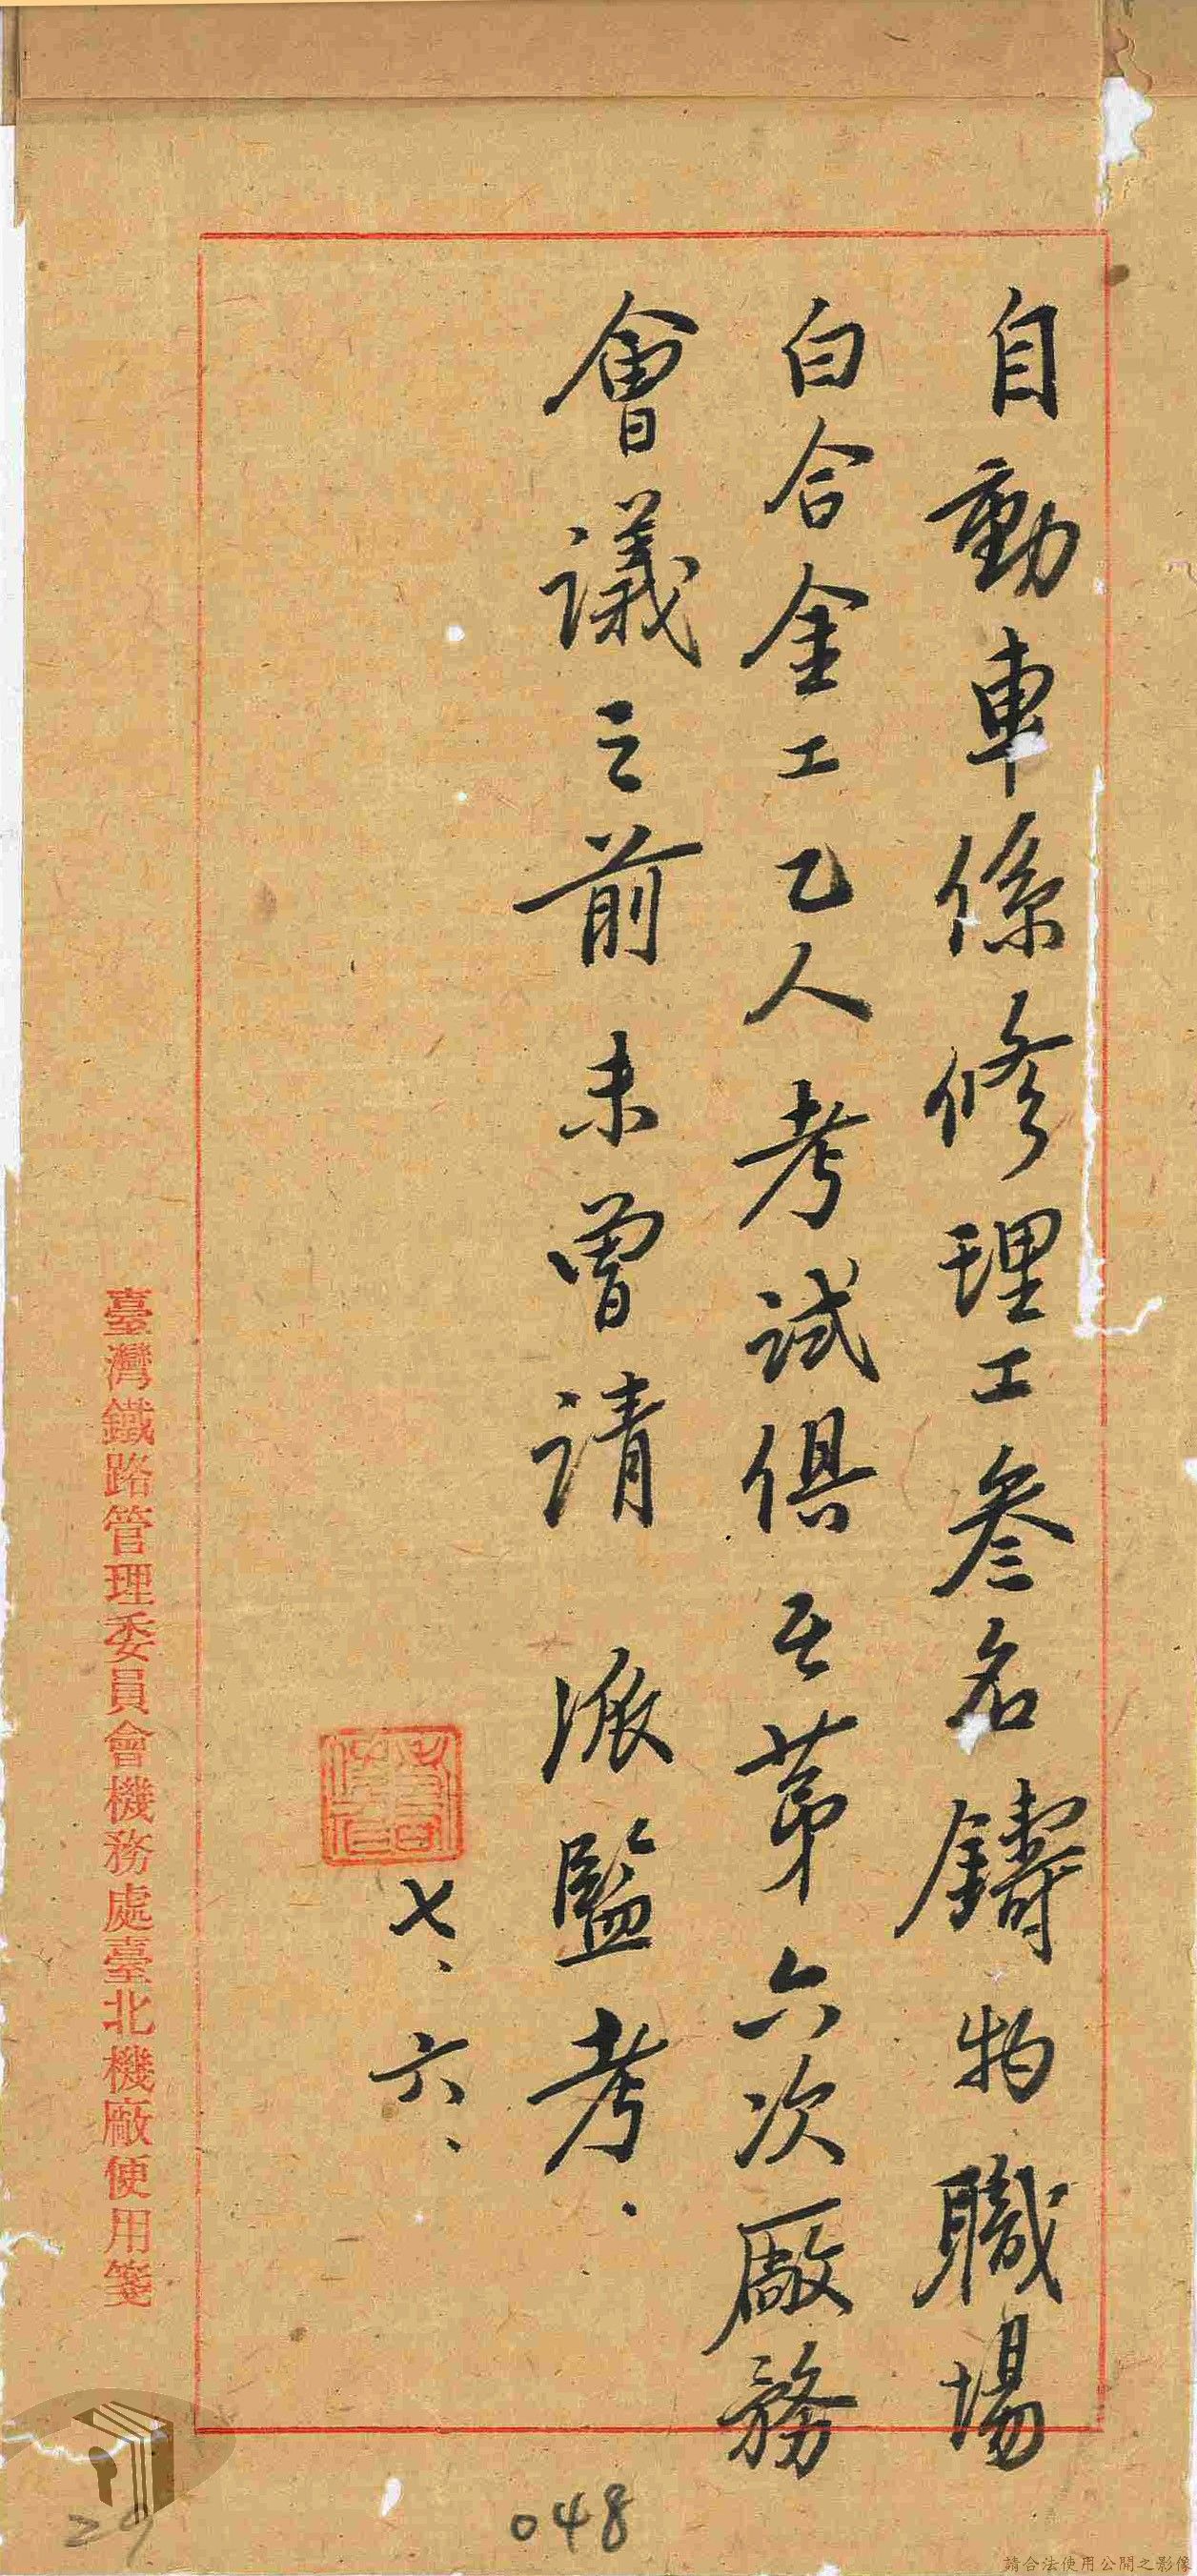 自動車係修理工叄名鑄物職場
白合金工乙人考試俱在第六次廠務
會議之前未曾請 派監考、
七、六、
臺灣鐵路管理委員會機務處臺北機廠使用箋
048
29
請合法使用公開之影像